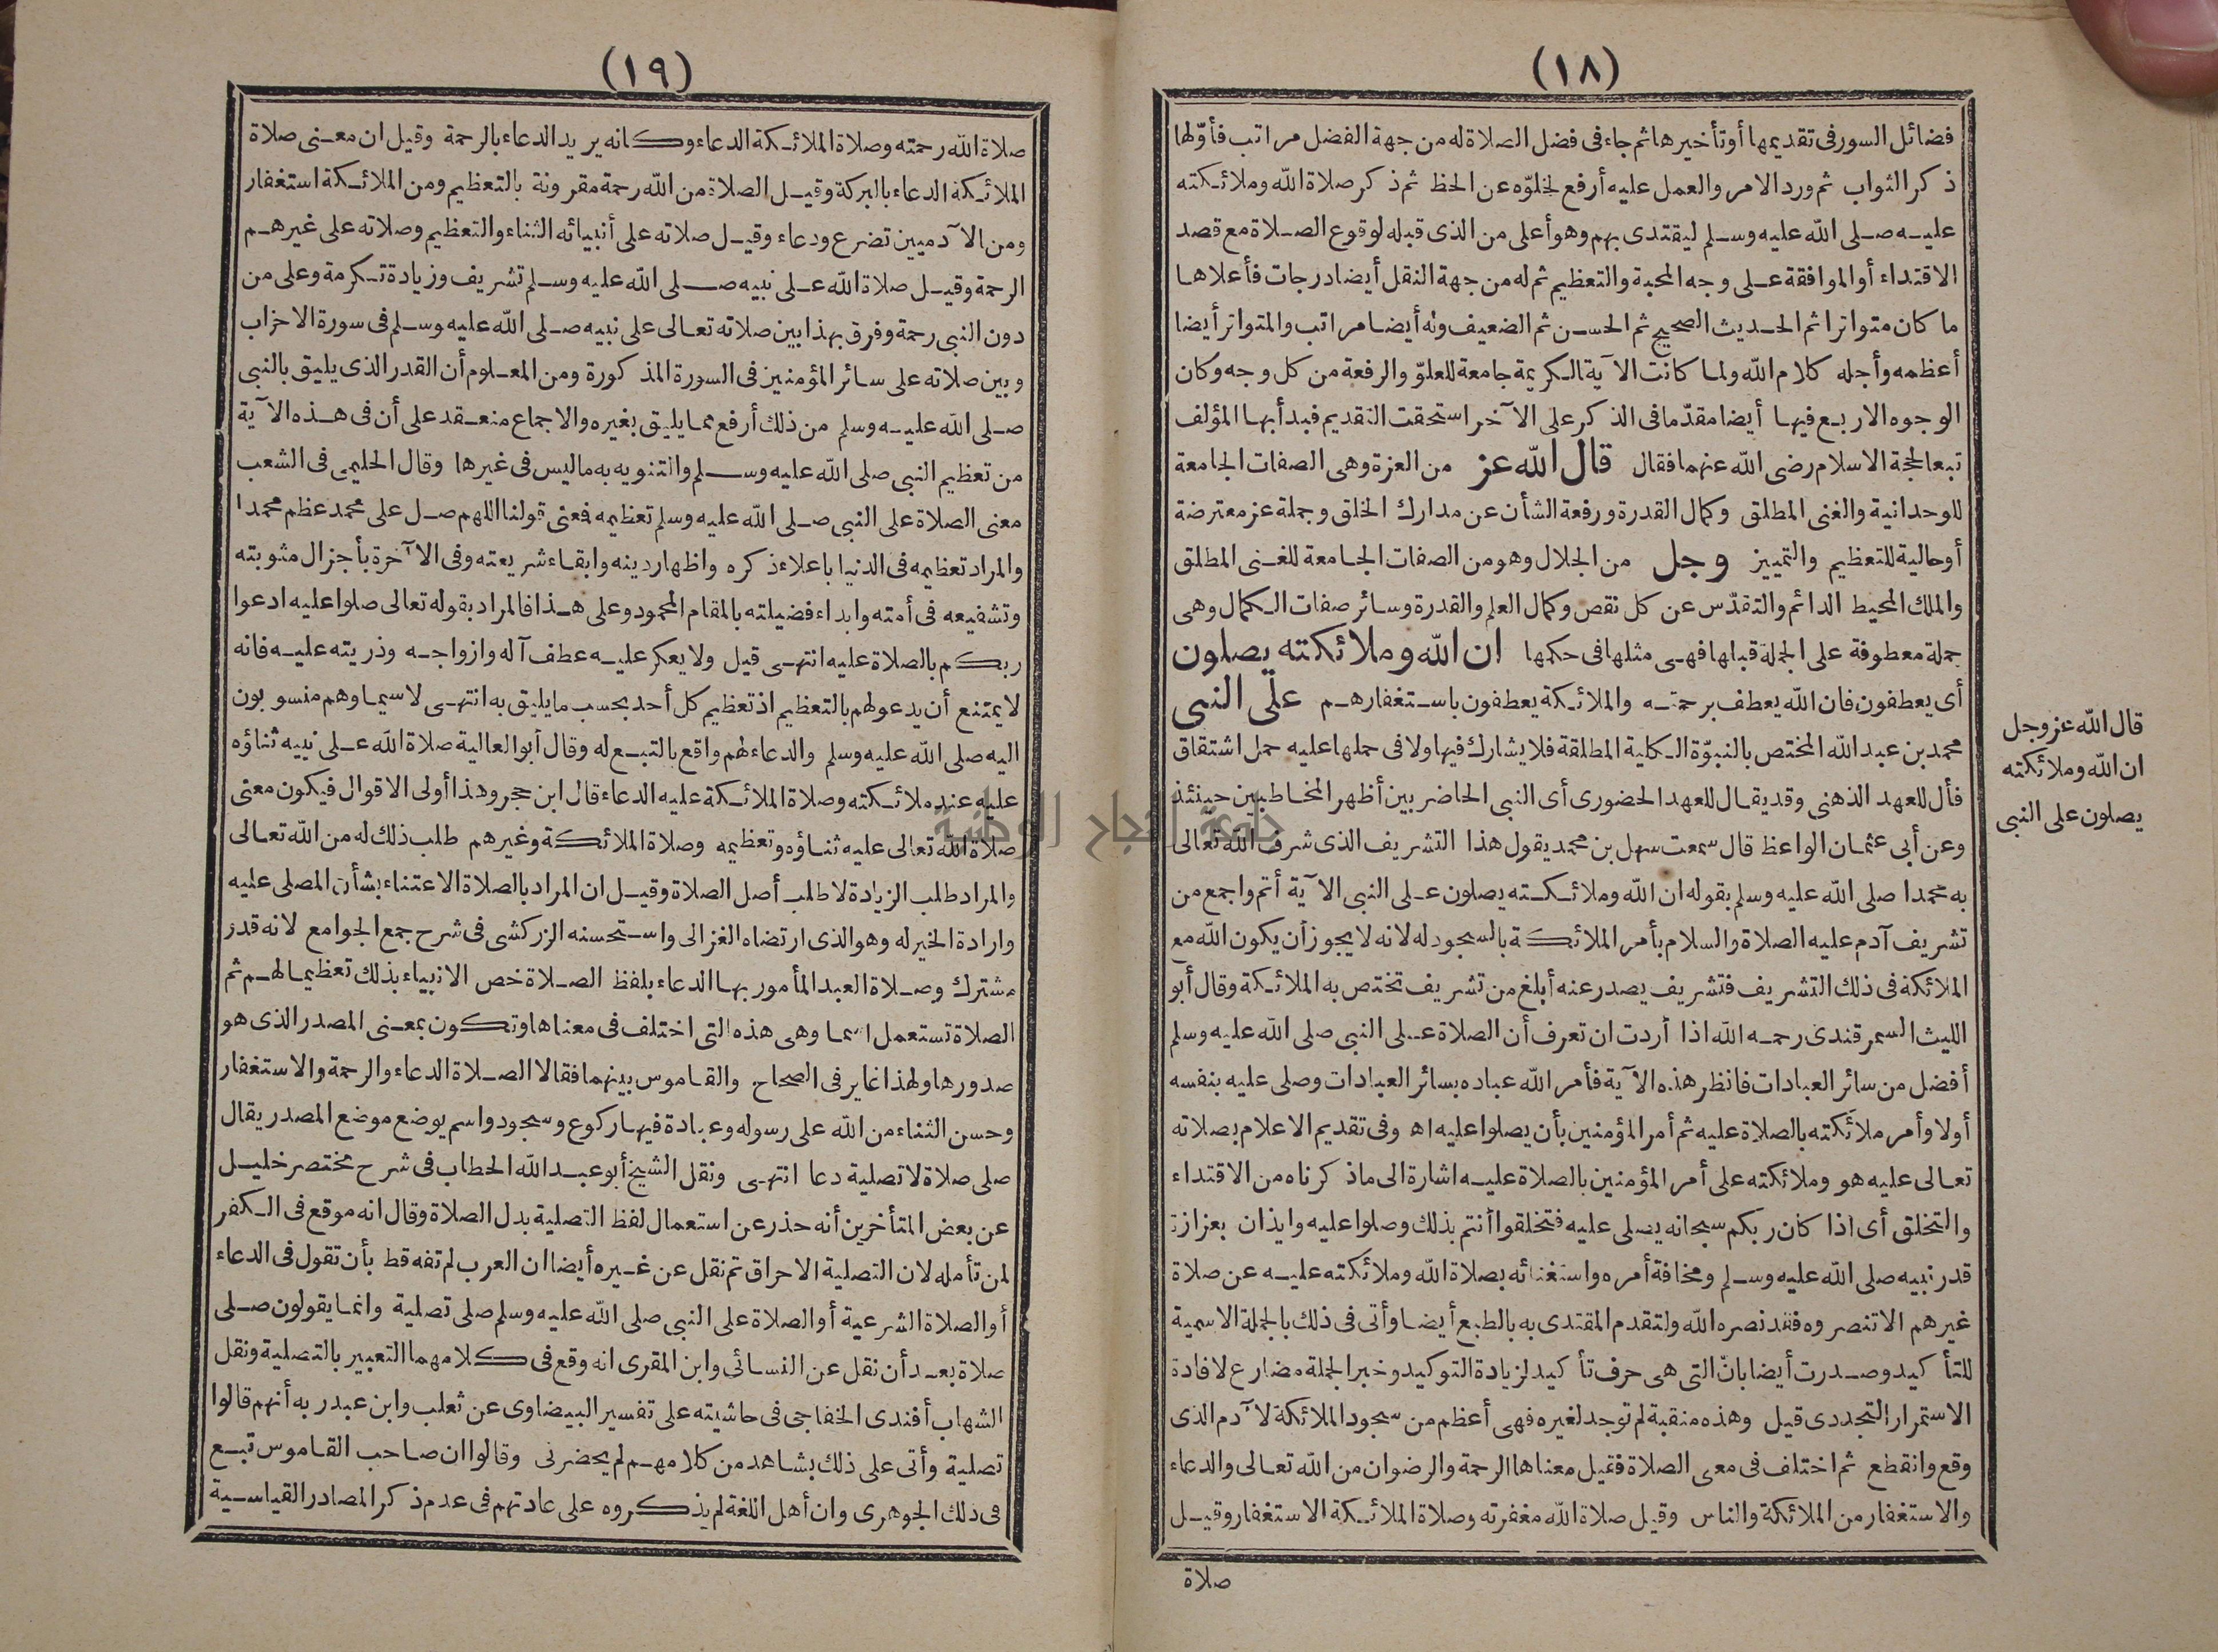 (١٨)
فضائل السور فى تقديمها أو تأخيرها ثم جاء فى فضل الصلاة له من جهة الفضل مراتب فأولها
ذكر الثواب ثم ورد الامر والعمل عليه أرفع لخلوّه عن الحظ ثم ذكر صلاة الله وملائكته
عليه صلى الله عليه وسلم ليقتدى بهم وهو أعلى من الذى قبله لوقوع الصلاة مع قصد
الاقتداء أو الموافقة على وجه المحبة والتعظيم ثم له من جهة النقل أيضا درجات فأعلاها
ما كان متواترا ثم الحديث الصحيح ثم الحسن ثم الضعيف وله أيضا مراتب والمتواتر أيضا
أعظمه وأجله كلام الله ولما كانت الآية الكريمة جامعة للعلوّ والرفعة من كل وجه وكان
الوجوه الاربع فيها أيضا مقدّما فى الذكر على الآخر استحقت التقديم فبدأ بها المؤلف
تبعا لحجة الاسلام رضى الله عنهما فقال قال الله عز من العزة وهى الصفات الجامعة
للوحدانية والغنى المطلق وكمال القدرة ورفعة الشأن عن مدارك الخلق وجملة عز معترضة
أو حالية للتعظيم والتمييز وجل من الجلال وهو من الصفات الجامعة للغنى المطلق
والملك المحيط الدائم والتقدّس عن كل نقص وكمال العلم والقدرة وسائر صفات الكمال وهى
جملة معطوفة على الجملة قبلها فهى مثلها فى حكمها ان الله وملائكته يصلون
أى يعطفون فان الله يعطف برحمته والملائكة يعطفون باستغفارهم على النبى
محمد بن عبد الله المختص بالنبوّة الكلية المطلقة فلا يشارك فيها ولا فى حملها عليه حمل اشتقاق
فأل للعهد الذهنى وقد يقال للعهد الحضورى أى النبى الحاضر بين أظهر المخاطبين حينئذ
وعن أبى عثمان الواعظ قال سمعت سهل بن محمد يقول هذا التشريف الذى شرف الله تعالى
به محمدا صلى الله عليه وسلم بقوله ان الله وملائكته يصلون على النبى الآية أتم واجمع من
تشريف آدم عليه الصلاة والسلام بأمر الملائكة بالسجود له لانه لا يجوز أن يكون الله مع
الملائكة فى ذلك التشريف فتشريف يصدر عنه أبلغ من تشريف تختص به الملائكة وقال أبو
الليث السمرقندى رحمه الله اذا أردت ان تعرف أن الصلاة على النبى صلى الله عليه وسلم
أفضل من سائر العبادات فانظر هذه الآية فأمر الله عباده بسائر العبادات وصلى عليه بنفسه
أولا وأمر ملائكته بالصلاة عليه ثم أمر المؤمنين بأن يصلوا عليه اه وفى تقديم الاعلام بصلاته
تعالى عليه هو وملائكته على أمر المؤمنين بالصلاة عليه اشارة الى ما ذكرناه من الاقتداء
والتخلق أى اذا كان ربكم سبحانه يصلى عليه فتخلقوا أنتم بذلك وصلوا عليه وايذان بعزازة
قدر نبيه صلى الله عليه وسلم وفخافة أمره واستغنائه بصلاة الله وملائكته عليه عن صلاة
غيرهم الا تنصروه فقد نصره الله ولتقدم المقتدى به بالطبع أيضا وأتى فى ذلك بالجملة الاسمية
للتأكيد وصدرت أيضا بانّ التى هى حرف تأكيد لزيادة التوكيد وخبر الجملة مضارع لافادة
الاستمرار التجددى قيل وهذه منقبة لم توجد لغيره فهى أعظم من سجود الملائكة لآدم الذى
وقع وانقطع ثم اختلف فى معى الصلاة فقيل معناها الرحمة والرضوان من الله تعالى والدعاء
والاستغفار من الملائكة والناس وقيل صلاة الله مغفرته وصلاة الملائكة الاستغفار وقيل
صلاة
قال الله عز وجل
ان الله وملائكته
يصلون على النبى
(١٩)
صلاة الله رحمته وصلاة الملائكة الدعاء وكانه يريد الدعاء بالرحمة وقيل ان معنى صلاة
الملائكة الدعاء بالبركة وقيل الصلاة من الله رحمة مقرونة بالتعظيم ومن الملائكة استغفار
ومن الآدميين تضرع ودعاء وقيل صلاته على أنبيائه الثناء والتعظيم وصلاته على غيرهم
الرحمة وقيل صلاة الله على نبيه صلى الله عليه وسلم تشريف وزيادة تكرمة وعلى من
دون النبى رحمة وفرق بهذا بين صلاته تعالى على نبيه صلى الله عليه وسلم فى سورة الاحزاب
وبين صلاته على سائر المؤمنين فى السورة المذكورة ومن المعلوم أن القدر الذى يليق بالنبى
صلى الله عليه وسلم من ذلك أرفع مما يليق بغيره والاجماع منعقد على أن فى هذه الآية
من تعظيم النبى صلى الله عليه وسلم والتنويه به ماليس فى غيرها وقال الحليمى فى الشعب
معنى الصلاة على النبى صلى الله عليه وسلم تعظيمه فعنى قولنا اللهم صل على محمد عظم محمدا
والمراد تعظيمه فى الدنيا باعلاء ذكره واظهار دينه وابقاء شريعته وفى الآخرة بأجزال مثوبته
وتشفيعه فى أمته وابداء فضيلته بالمقام المحمود وعلى هذا فالمراد بقوله تعالى صلوا عليه ادعوا
ربكم بالصلاة عليه انتهى قيل ولا يعكر عليه عطف آله وازواجه وذريته عليه فانه
لا يمتنع أن يدعولهم بالتعظيم اذ تعظيم كل أحد بحسب ما يليق به انتهى لا سيما وهم منسوبون
اليه صلى الله عليه وسلم والدعاء لهم واقع بالتبع له وقال أبو العالية صلاة الله على نبيه ثناؤه
عليه عند ملائكته وصلاة الملائكة عليه الدعاء قال ابن حجر وهذا أولى الاقوال فيكون معنى
صلاة الله تعالى عليه ثناؤه وتعظيمه وصلاة الملائكة وغيرهم طلب ذلك له من الله تعالى
والمراد طلب الزيادة لا طلب أصل الصلاة وقيل ان المراد بالصلاة الاعتناء بشأن المصلى عليه
وارادة الخير له وهو الذى ارتضاه الغزالى واستحسنه الزركشى فى شرح جمع الجوامع لانه قدر
مشترك وصلاة العبد المأمور بها الدعاء بلفظ الصلاة خص الانبياء بذلك تعظيما لهم ثم
الصلاة تستعمل اسما وهى هذه التى اختلف فى معناها وتكون بمعنى المصدر الذى هو
صدورها ولهذا غاير فى الصحاح والقاموس بينهما فقالا الصلاة الدعاء والرحمة والاستغفار
وحسن الثناء من الله على رسوله وعبادة فيها ركوع وسجود واسم يوضع موضع المصدر يقال
صلى صلاة لا تصلية دعا انتهى ونقل الشيخ أبو عبد الله الحطاب فى شرح مختصر خليل
عن بعض المتأخرين أنه حذر عن استعمال لفظ التصلية بدل الصلاة وقال انه موقع فى الكفر
لمن تأمله لان التصلية الاحراق ثم نقل عن غيره أيضا ان العرب لم تفه قط بأن تقول فى الدعاء
أو الصلاة الشرعية أو الصلاة على النبى صلى الله عليه وسلم صلى تصلية وانما يقولون صلى
صلاة بعد أن نقل عن النسائى وابن المقرى انه وقع فى كلامهما التعبير بالتصلية ونقل
الشهاب أفندى الخفاجى فى حاشيته على تفسير البيضاوى عن ثعلب وابن عبدربه أنهم قالوا
تصلية وأتى على ذلك بشاهد من كلامهم لم يحضرنى وقالوا ان صاحب القاموس تبع
فى ذلك الجوهرى وان أهل اللغة لم يذكروه على عادتهم فى عدم ذكر المصادر القياسية
جامعة النجاح الوطنية